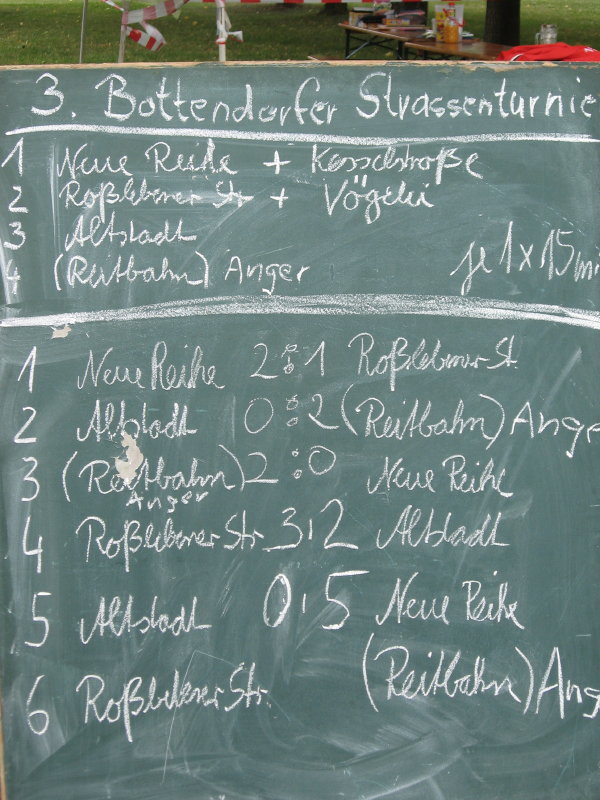 3. Bottendorfer Strassenturnie
1 Neue Reihe + Kesselstraße
2 Roßlebener Str + Vögelei
3 Altstadt
4 (Reitbahn) Anger je 1x15mi
1 Neue Reihe 2:1 Roßlebener St.
2 Altstadt 0:2 (Reitbahn) Ange
3 (Reitbahn) 2:0 Neue Reihe
Anger
4 Roßlebener Str. 3:2 Altstadt
5 Altstadt 0:5 Neue Reihe
6 Roßlebener Str. (Reitbahn) Ang